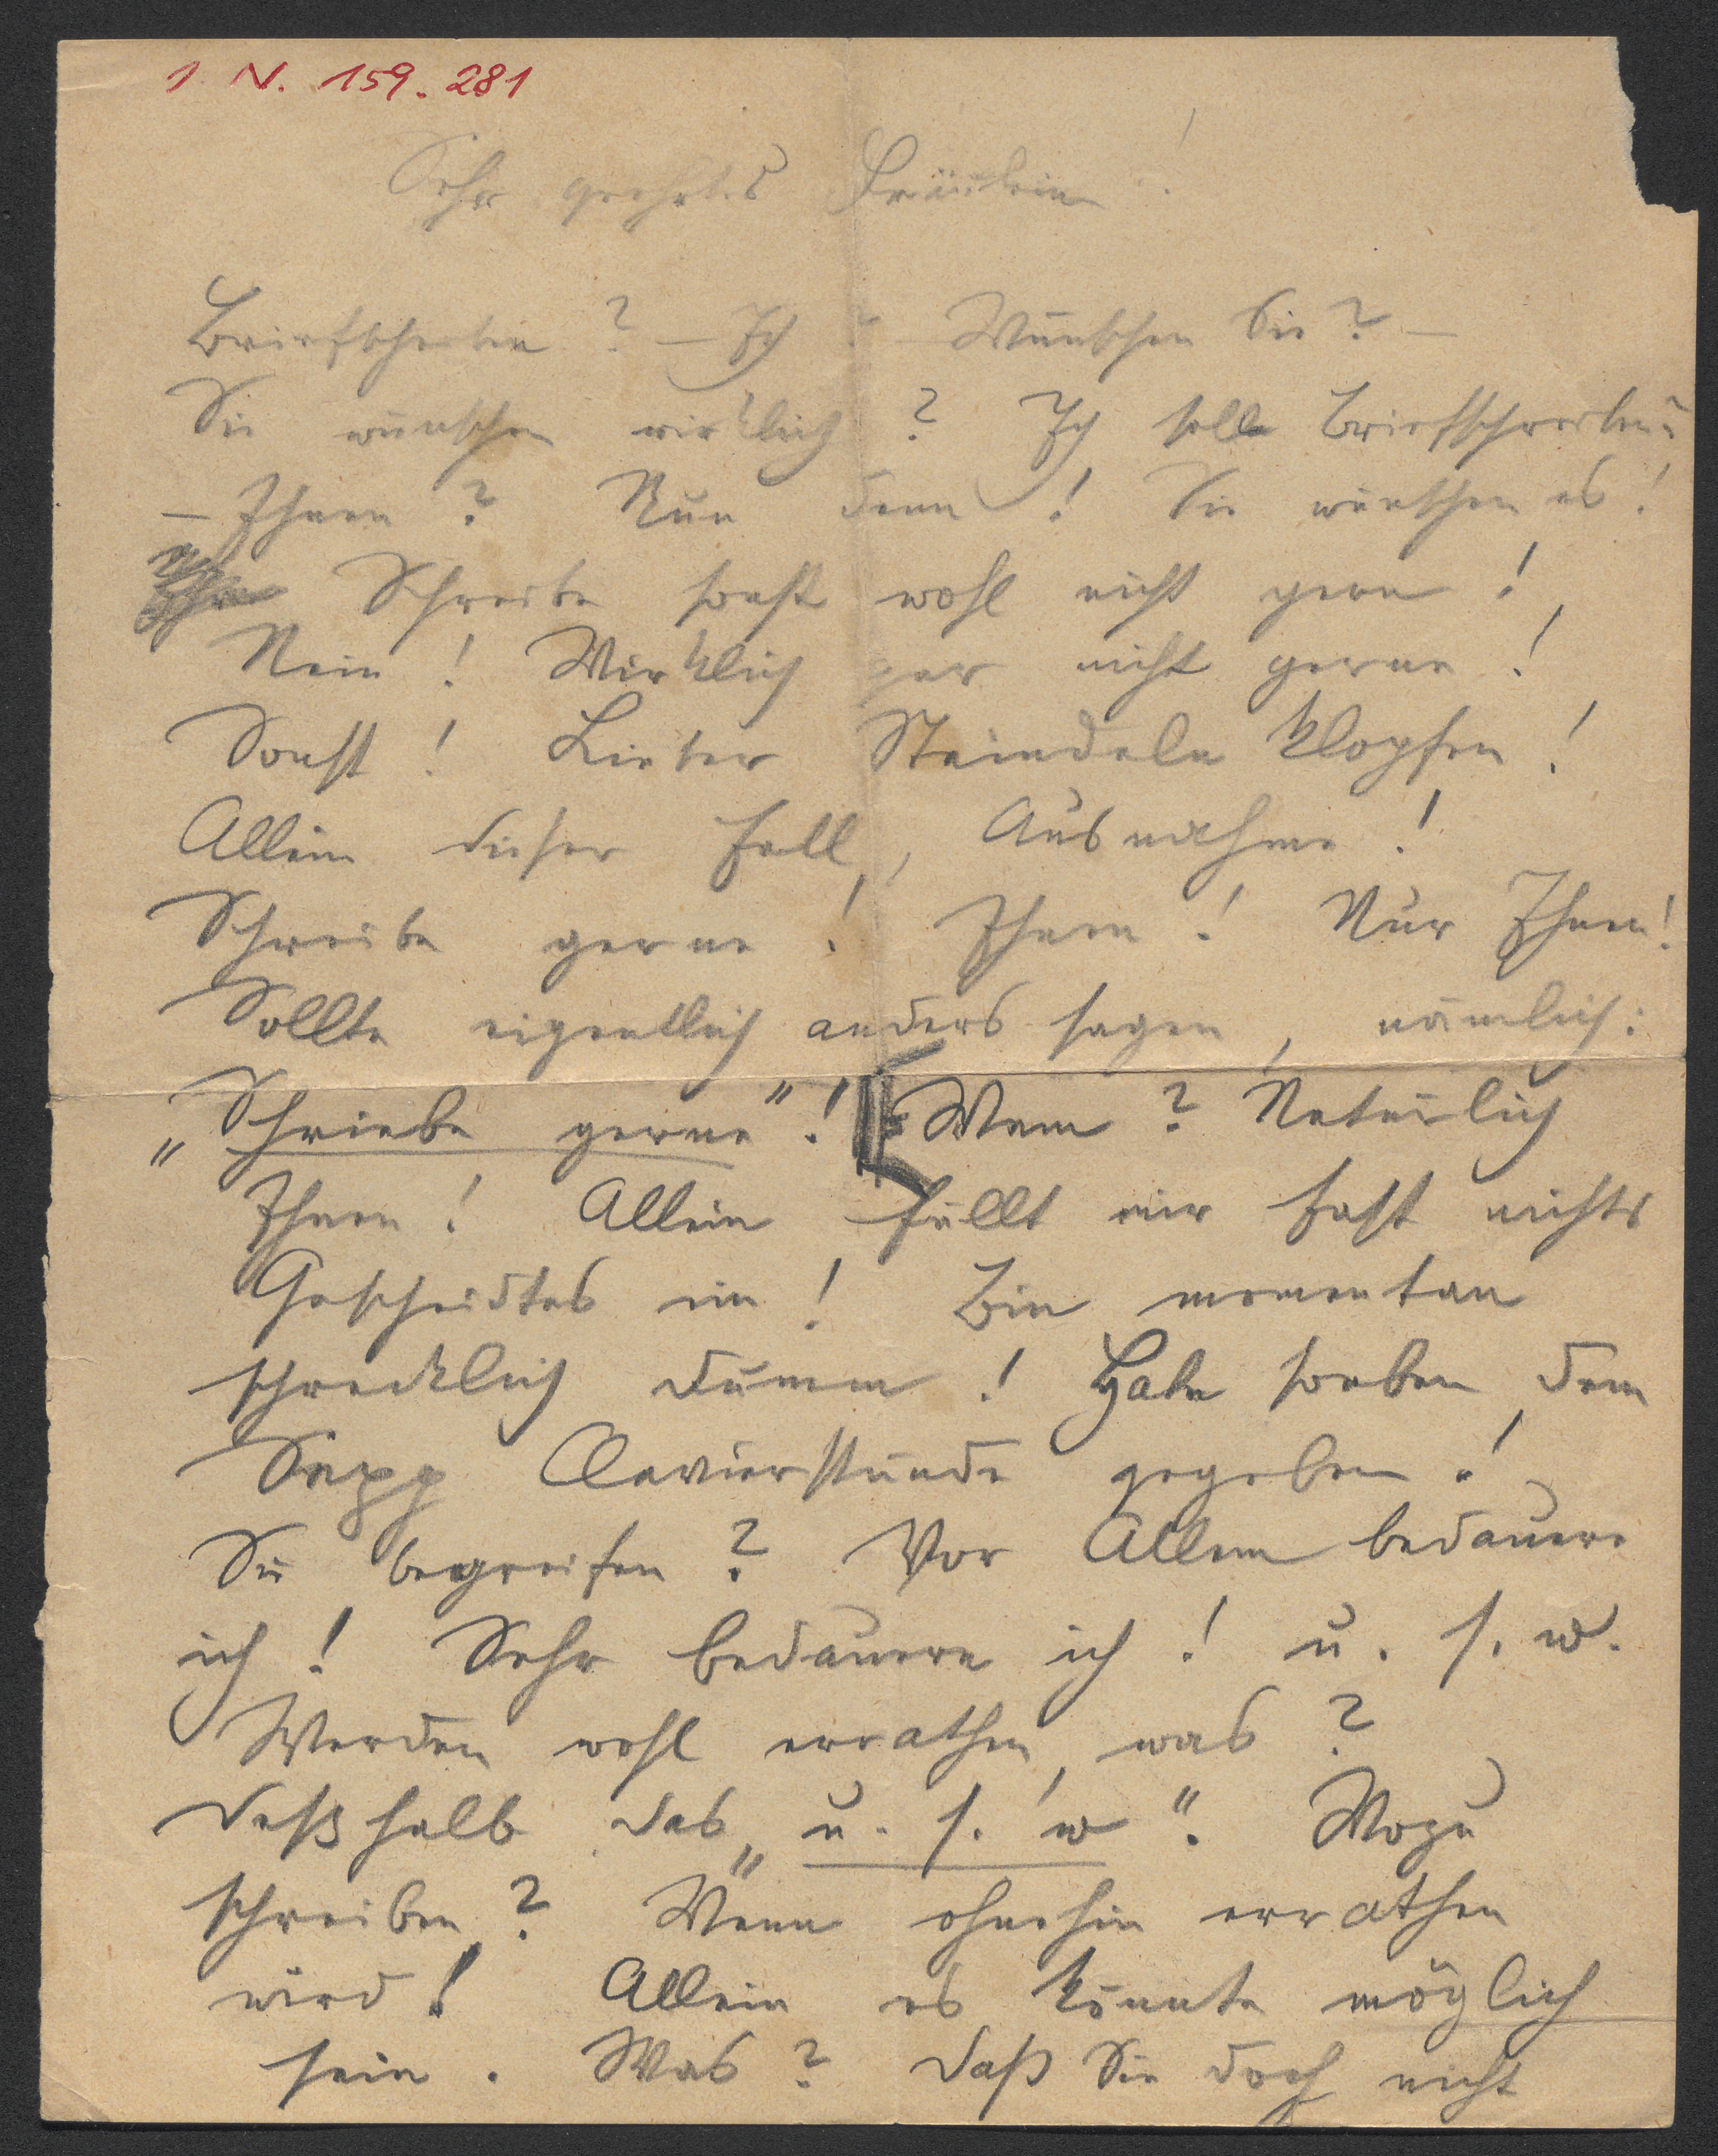 I. N. 159.281
Sehr geehrtes Fräulein!
Briefschreiben? – Ich? Wünschen Sie? –
Sie wünschen wirklich? Ich solle Briefschreiben?
– Ihnen? Nun denn! Sie wünschen es!
Schreibe sonst wohl nicht gern!
Nein! Wirklich gar nicht gerne!
Sonst! Lieber Steindeln klopfen!
Allein dieser Fall, Ausnahme!
Schreibe gerne! Ihnen! Nur Ihnen!
Sollte eigentlich anders sagen, nämlich:
„Schriebe gerne"! Wem? Natürlich
Ihnen! Allein fällt mir fast nichts
Gescheidtes ein! Bin momentan
schrecklich dumm! Habe soeben dem
Sepp Clavierstunde gegeben!
Sie begreifen? Vor Allem bedauere
ich! Sehr bedauere ich! u. s. w.
Werden wohl errathen, was?
deßhalb das „u. s. w". Wozu
schreiben? Wenn ohnehin errathen
wird! Allein es könnte möglich
sein. Was? daß Sie doch nicht